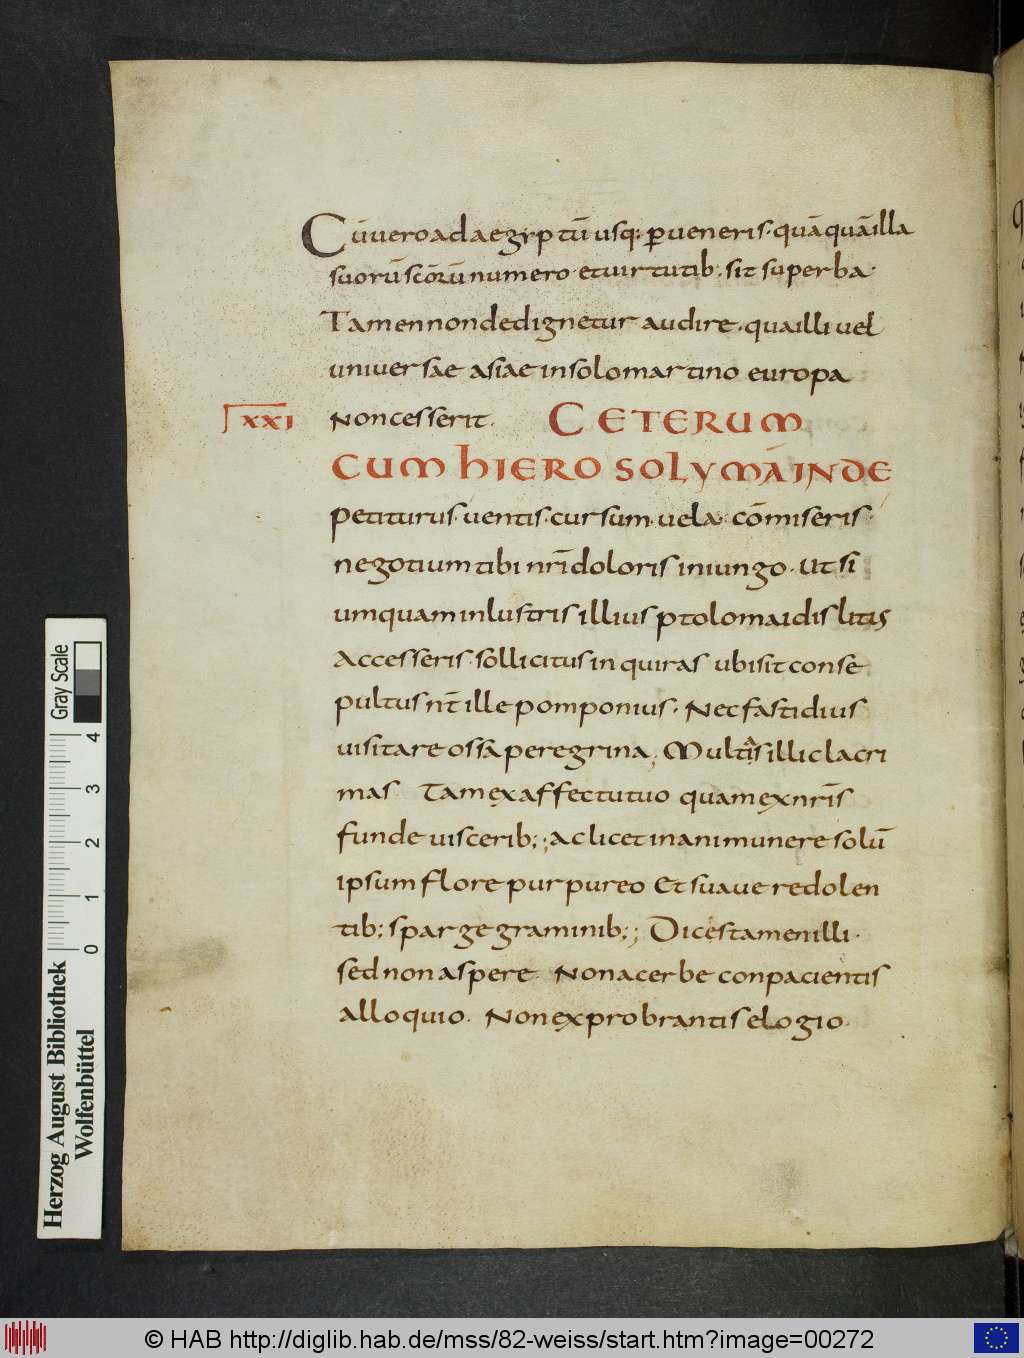 Cū uero ad aegyptū usq; ꝑueneris · quāquā illa
suorū scōrū numero · et uirtutib · sit superba ·
Tamen non dedignetur audire · qua illi uel
universae asiae in solo martino europa
XXI Non cesserit · CETERUM
CUM HIEROSOLYMA INDE
petiturus · uentis · cursum · uela · cōmiseris ·
negotium tibi nr̄i doloris iniungo · ut si
umquam inlustris illius ptolomaidis litis
Accesseris · sollicitus inquiras ubi sit conse
pultus nr̄ ille pomponius · Nec fastidius
uisitare ossa peregrina ; Multas illic lacri
mas Tam ex affectu tuo quam ex nr̄is
funde uiscerib; ; ac licet inani munere solū
ipsum flore purpureo Et suaue redolen
tib; sparge graminib; ; Dices tamen illi ·
sed non aspere Non acerbe conpacientis
alloquio · Non exprobrantis elogio ·
Herzog August Bibliothek
Wolfenbüttel
0 1 2 3 4
Gray Scale
© HAB http://diglib.hab.de/mss/82-weiss/start.htm?image=00272